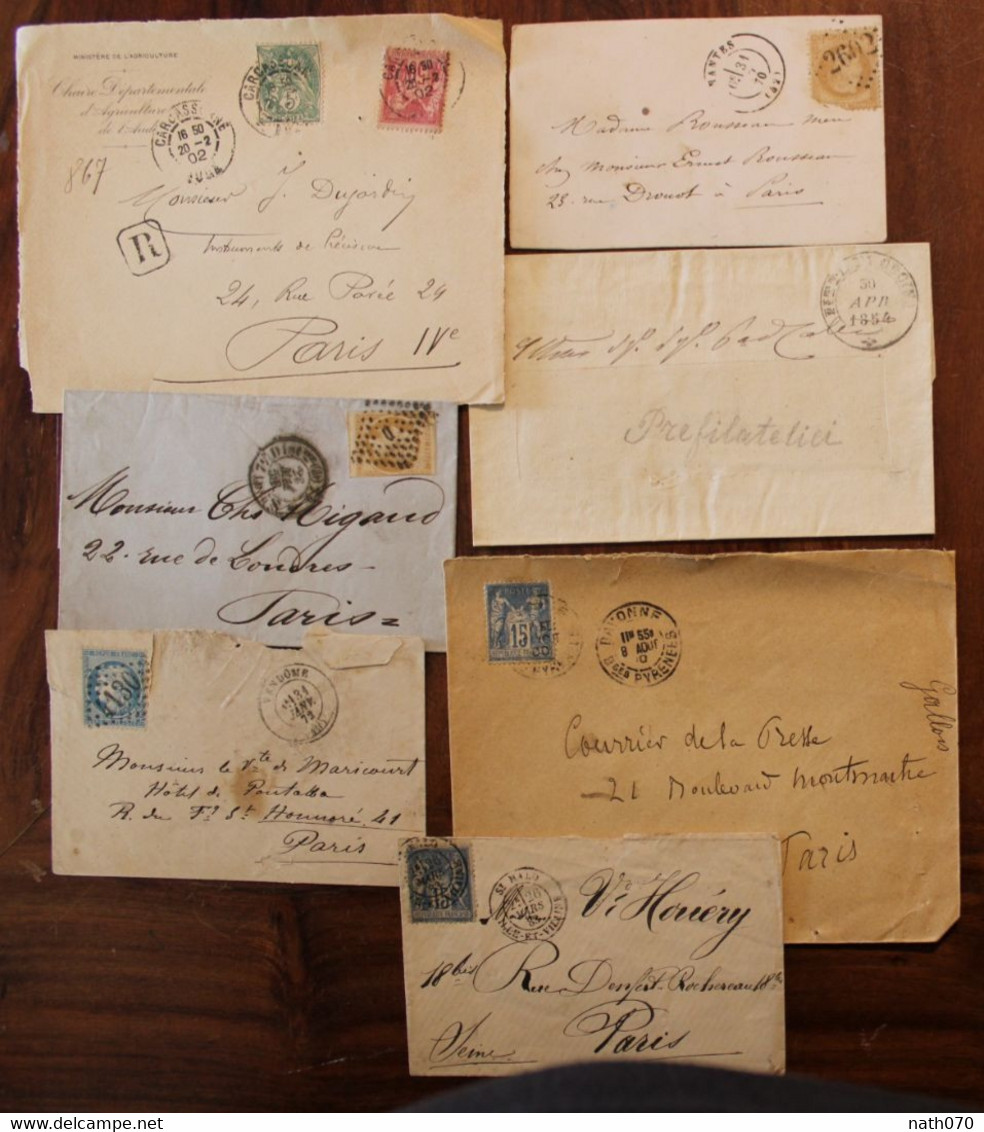 MINISTÈRE DE L'AGRICULTURE
Chaire Départementale
d'Agriculture
de l'Aude
867
CARCASSONNE
16 50
20 - 2
02
AUDE
5
R
Monsieur J. Dujardin
Instruments de Précision
24, Rue Pavée 24
Paris IVe
NANTES
31
70
2602
Madame Rousseau mère
chez Monsieur Ernest Rousseau
23. rue Drouot à Paris
30
APR
1854
Prefilatelici
D
Monsieur Chs Rigaud
22. rue de Londres
Paris
4130
VENDOME
31
JANV.
Monsieur le Vte de Maricourt
Hôtel de Pontalba
R. du Fg St Honnoré, 41
Paris
15
BAYONNE
11H 55M
8 AOUT
BSES PYRENEES
Gallois
Courrier de la Presse
21 Boulevard Montmartre
Paris
15
ST MALO
20
MARS
ILLE-ET-VILAINE
Vr Houéry
18bis Rue Denfert-Rochereau 18bis
Paris
Seine
nath070